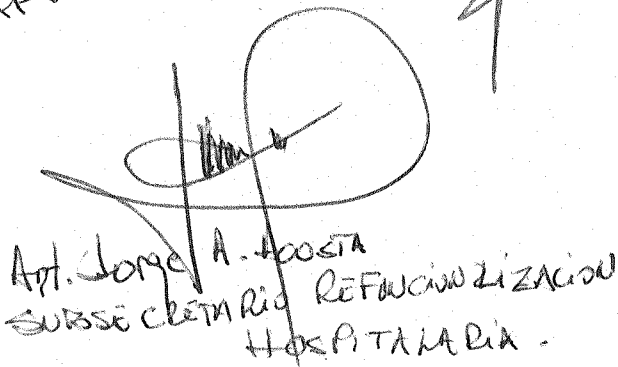 Jorge A. ACOSTA
SUBSECRETARIO REFUNCIONLIZACION
HOSPITALARIA.